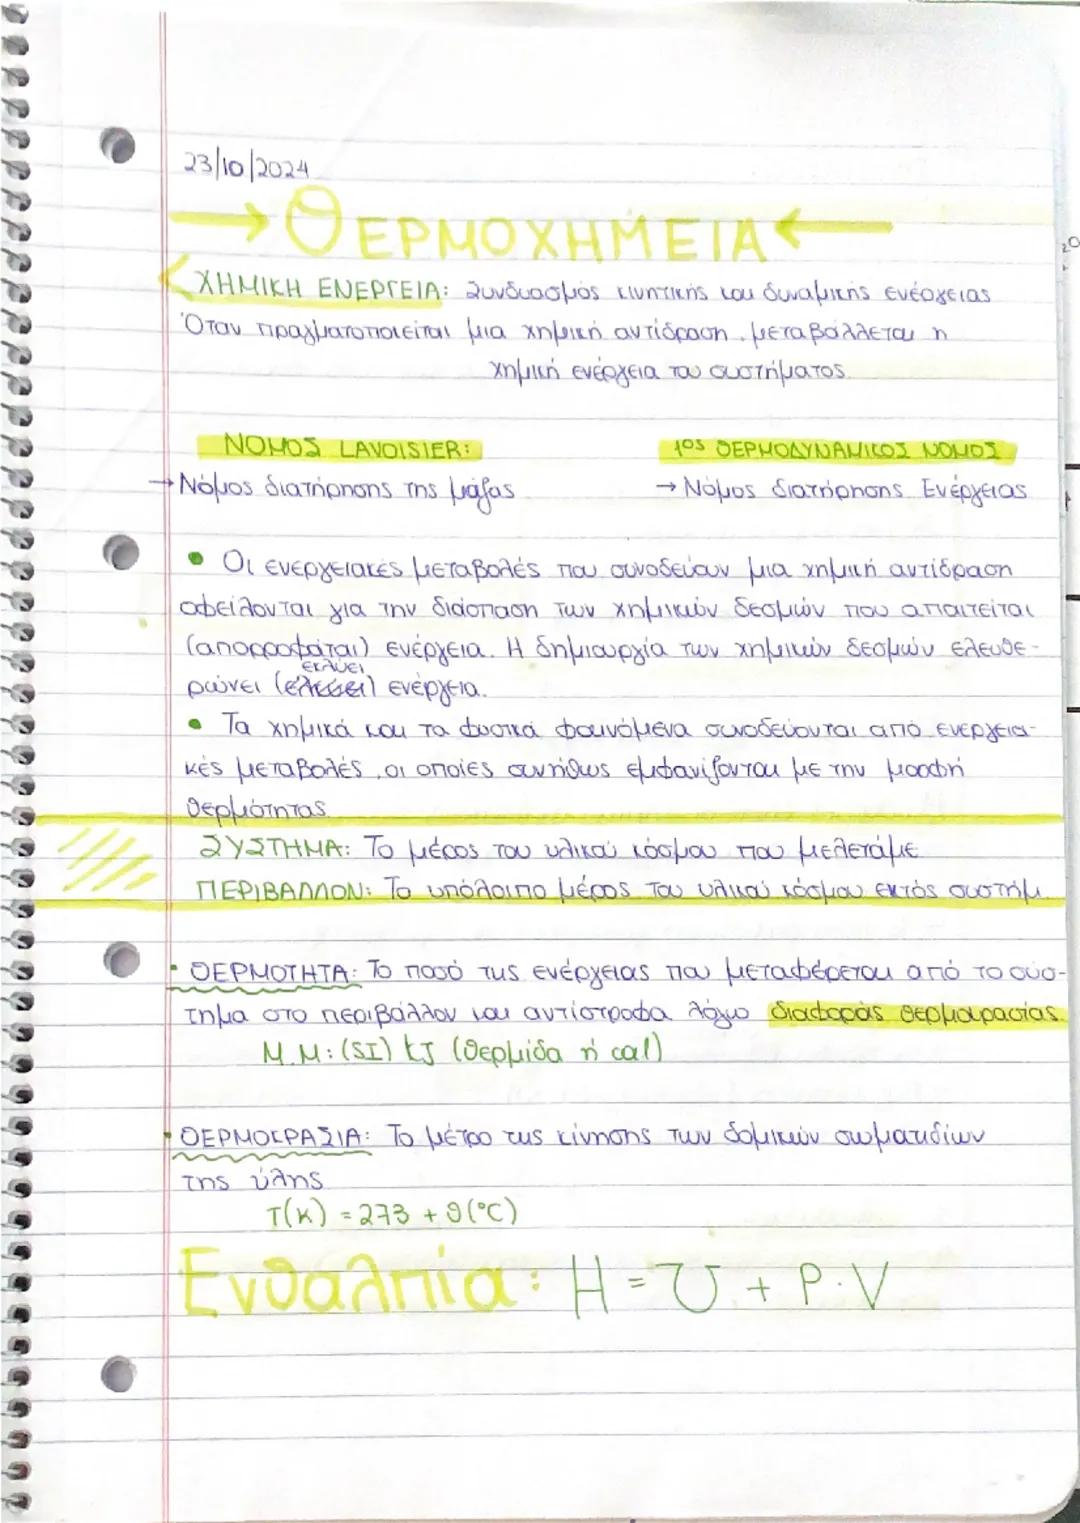 23/10/2024
→ ΘΕΡΜΟΧΗΜΕΙΑ ←
ΧΗΜΙΚΗ ΕΝΕΡΓΕΙΑ: Συνδυασμός κινητικής και δυναμικής ενέργειας
Όταν πραγματοποιείται μια χημική αντίδραση, μεταβάλλεται η
χημική ενέργεια του συστήματος.
ΝΟΜΟΣ LAVOISIER:
→ Νόμος διατήρησης της μάζας
1ος ΘΕΡΜΟΔΥΝΑΜΙΚΟΣ ΝΟΜΟΣ
→ Νόμος διατήρησης Ενέργειας
• Οι ενεργειακές μεταβολές που συνοδεύουν μια χημική αντίδραση
οφείλονται για την διάσπαση των χημικών δεσμών που απαιτείται
(απορροφάται) ενέργεια. Η δημιουργία των χημικών δεσμών ελευθε-
εκλύει
ρώνει ( ) ενέργεια.
• Τα χημικά και τα φυσικά φαινόμενα συνοδεύονται από ενεργεια-
κές μεταβολές, οι οποίες συνήθως εμφανίζονται με την μορφή
θερμότητας.
ΣΥΣΤΗΜΑ: Το μέρος του υλικού κόσμου που μελετάμε
ΠΕΡΙΒΑΛΛΟΝ: Το υπόλοιπο μέρος του υλικού κόσμου εκτός συστήμ.
• ΘΕΡΜΟΤΗΤΑ: Το ποσό της ενέργειας που μεταφέρεται από το σύσ-
τημα στο περιβάλλον και αντίστροφα λόγω διαφοράς θερμοκρασίας
Μ.Μ: (SI) kJ (θερμίδα ή cal)
• ΘΕΡΜΟΚΡΑΣΙΑ: Το μέτρο της κίνησης των δομικών σωματιδίων
της ύλης
T(K) = 273 + θ(°C)
Ενθαλπία: H = U + P·V